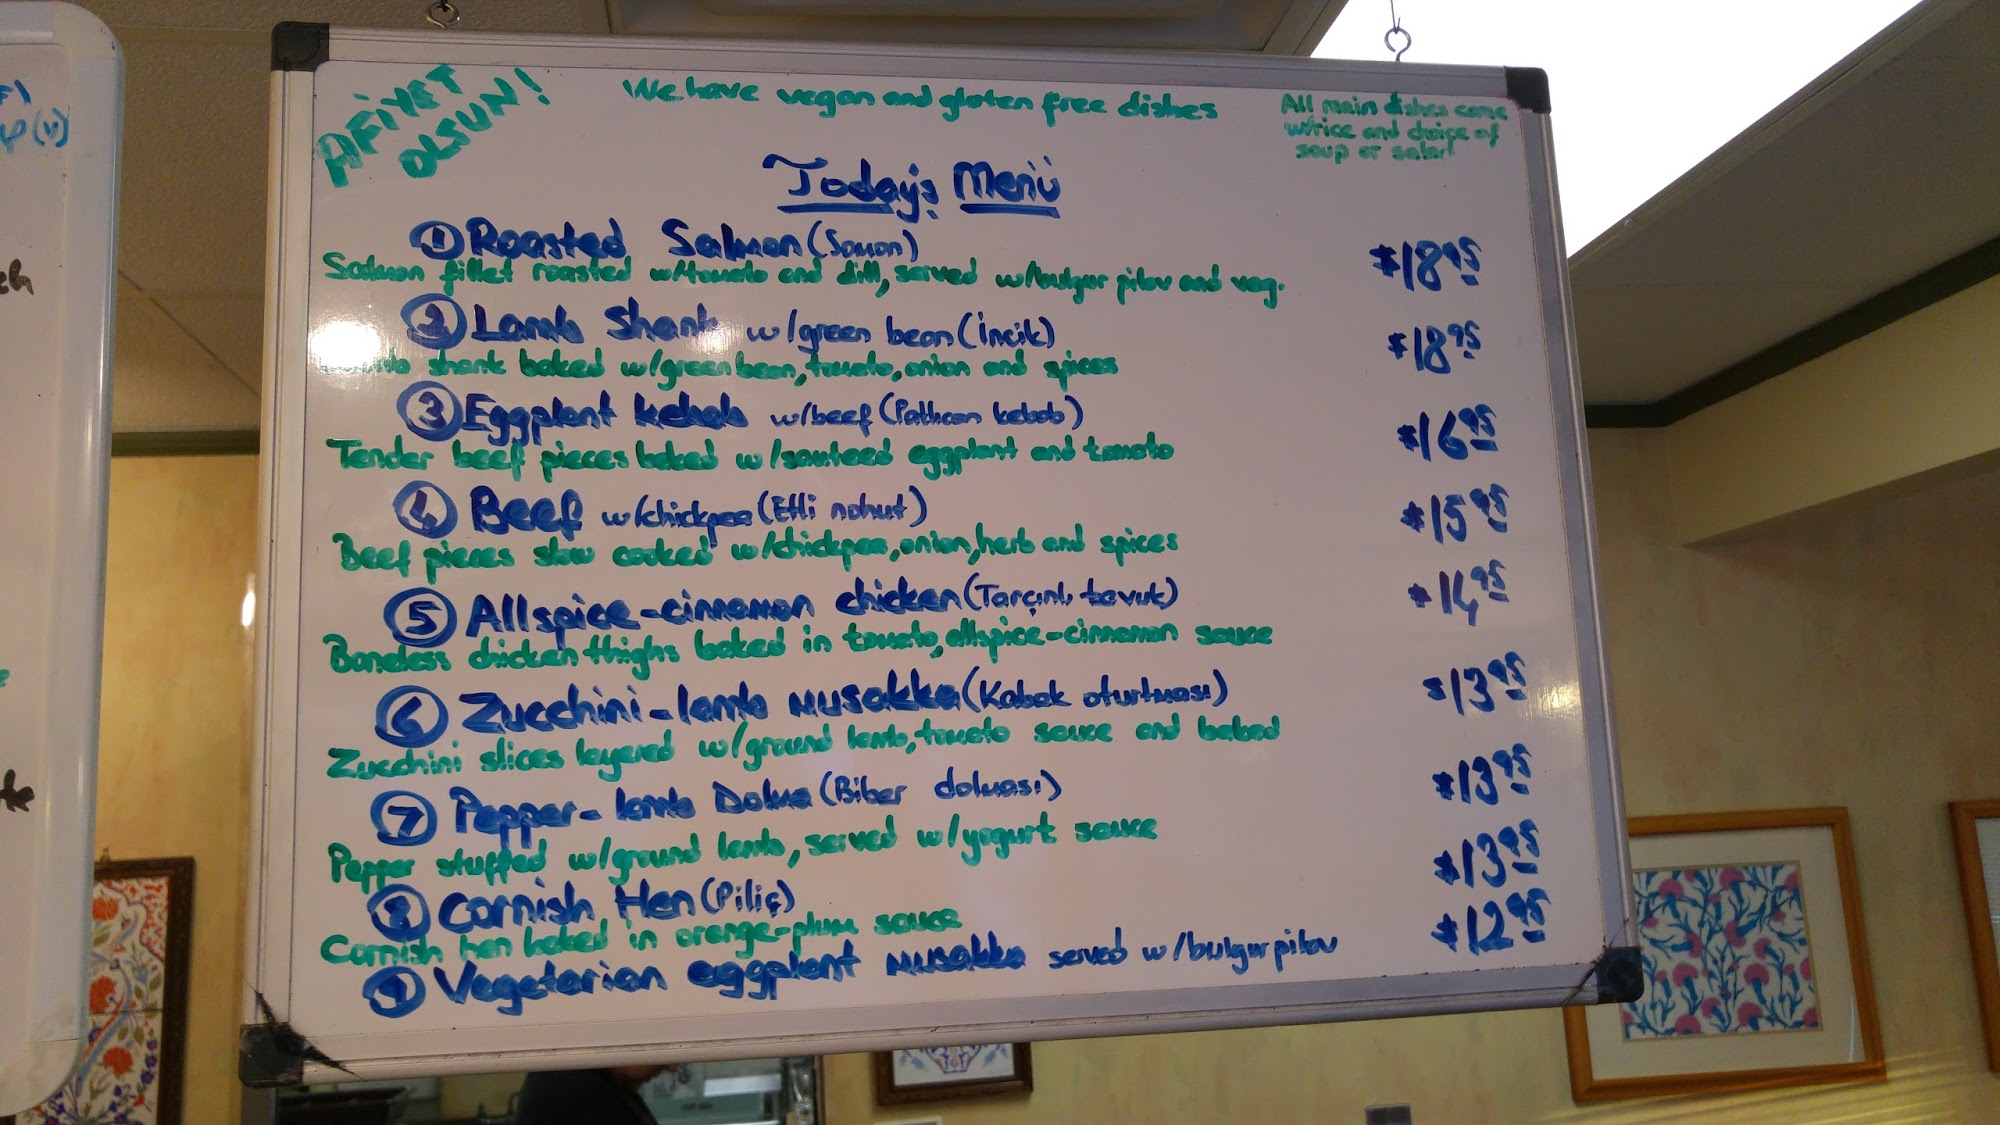 AFiYET
OLSUN!
We have vegan and gluten free dishes
All main dishes come
w/rice and choice of
soup or salad
Today's Menü
① Roasted Salmon (Somon)
$18.95
Salmon fillet roasted w/tomato and dill, served w/bulgur pilav and veg.
② Lamb Shank w/green bean (İncik)
$18.95
shank baked w/green bean, tomato, onion and spices
③ Eggplant kebab w/beef (Patlıcan kebab)
$16.95
Tender beef pieces baked w/sauteed eggplant and tomato
④ Beef w/chickpea (Etli nohut)
$15.95
Beef pieces slow cooked w/chickpea, onion, herb and spices
⑤ Allspice-cinnamon chicken (Tarçınlı tavuk)
$14.95
Boneless chicken thighs baked in tomato, allspice-cinnamon sauce
⑥ Zucchini-lamb musakka (Kabak oturtması)
$13.95
Zucchini slices layered w/ground lamb, tomato sauce and baked
⑦ Pepper-lamb Dolma (Biber dolması)
$13.95
Pepper stuffed w/ground lamb, served w/yogurt sauce
⑧ Cornish Hen (Piliç)
$13.95
Cornish hen baked in orange-plum sauce
⑨ Vegetarian eggplant musakka served w/bulgur pilav
$12.95